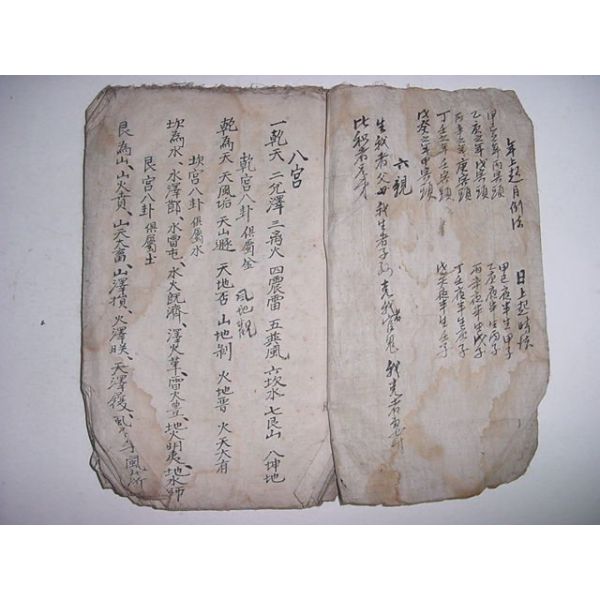 年上起月例法
甲己之年丙寅頭
乙庚之年戊寅頭
丙辛之年庚寅頭
丁壬之年壬寅頭
戊癸之年甲寅頭
日上起時訣
甲己夜半生甲子
乙庚夜半生丙子
丙辛夜半生戊子
丁壬夜半生庚子
戊癸夜半生壬子
六親
生我者父母 我生者子孫 克我者官鬼 我克者妻財
比和者兄弟
八宮
一乾天 二兌澤 三离火 四震雷 五巽風 六坎水 七艮山 八坤地
乾宮八卦 俱屬金 風地觀
乾為天 天風姤 天山遯 天地否 山地剝 火地晉 火天大有
坎宮八卦 俱屬水
坎為水、水澤節、水雷屯、水火既濟、澤火革、雷火豊、地火明夷、地水師
艮宮八卦 俱屬土
艮為山、山火賁、山天大畜、山澤損、火澤睽、天澤履、孚 風山漸